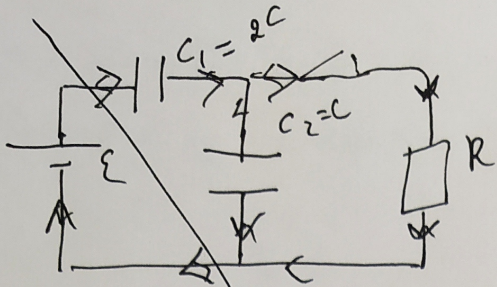 C₁ = 2C
C₂ = C
ε
R